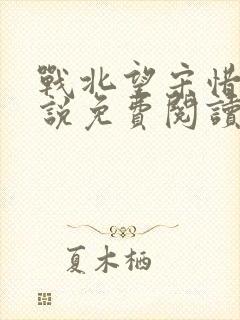 戰北望宋惜
說免費閱讀
夏木栖